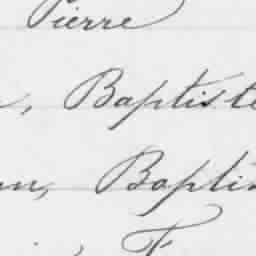 Pierre
, Baptiste
, Baptis
, F